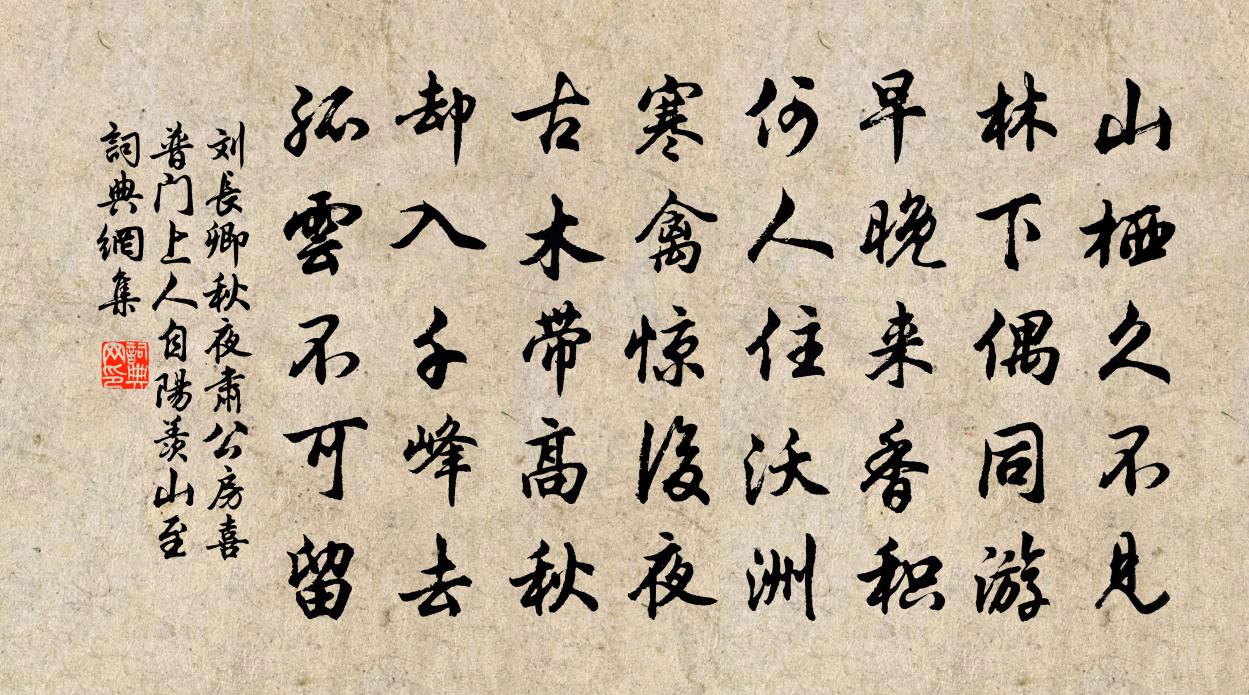 山栖久不见
林下偶同游
早晚来香积
何人住沃洲
寒禽惊後夜
古木带高秋
却入千峰去
孤雲不可留
刘長卿秋夜肃公房喜
普门上人自陽羡山至
詞典網集
詞典网印